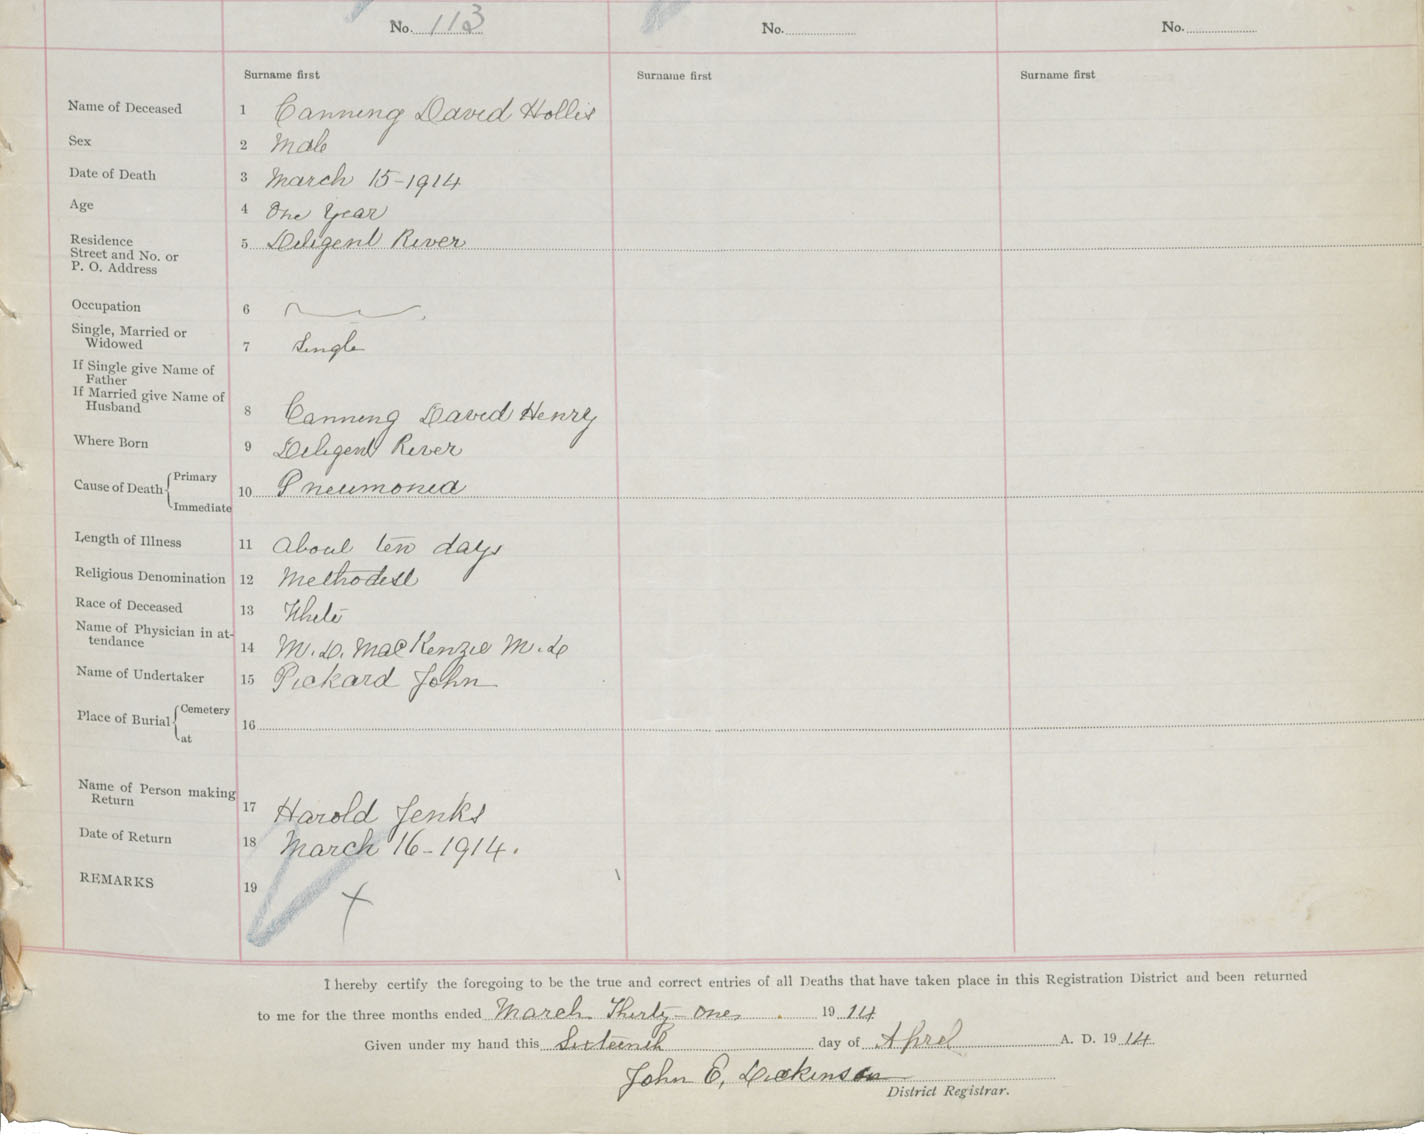 No. 113 No. No.
Surname first Surname first Surname first
Name of Deceased 1 Canning David Hollis
Sex 2 Male
Date of Death 3 March 15-1914
Age 4 One Year
Residence
Street and No. or
P. O. Address
5 Diligent River
Occupation 6
Single, Married or
Widowed
7 Single
If Single give Name of
Father
If Married give Name of
Husband
8 Canning David Henry
Where Born 9 Diligent River
Cause of Death Primary
Immediate
10 Pneumonia
Length of Illness 11 About ten days
Religious Denomination 12 Methodist
Race of Deceased 13 White
Name of Physician in at-
tendance
14 M. D. MacKenzie M.D
Name of Undertaker 15 Pickard John
Place of Burial Cemetery
at
16
Name of Person making
Return
17 Harold Jenks
Date of Return 18 March 16-1914.
REMARKS 19 x
I hereby certify the foregoing to be the true and correct entries of all Deaths that have taken place in this Registration District and been returned
to me for the three months ended March Thirty-one 19 14
Given under my hand this Sixteenth day of April A. D. 19 14
John E. Dickinson
District Registrar.